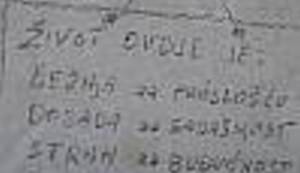 ŽIVOT OVDJE JE:
ČEŽNJA ZA PROŠLOŠĆU
DOSADA ZA SADAŠNJOST
STRAH ZA BUDUĆNOST